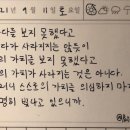 21 년 9 월 11 일 토 요일
다을 보지 못했다고
다가 사라지는 않듯이
의 가치를 보지 못했다고
의 가치가 사라지는 것은 아니다.
러니 스스로의 가치를 의심하지 마
명히 빛나고 있으니까.